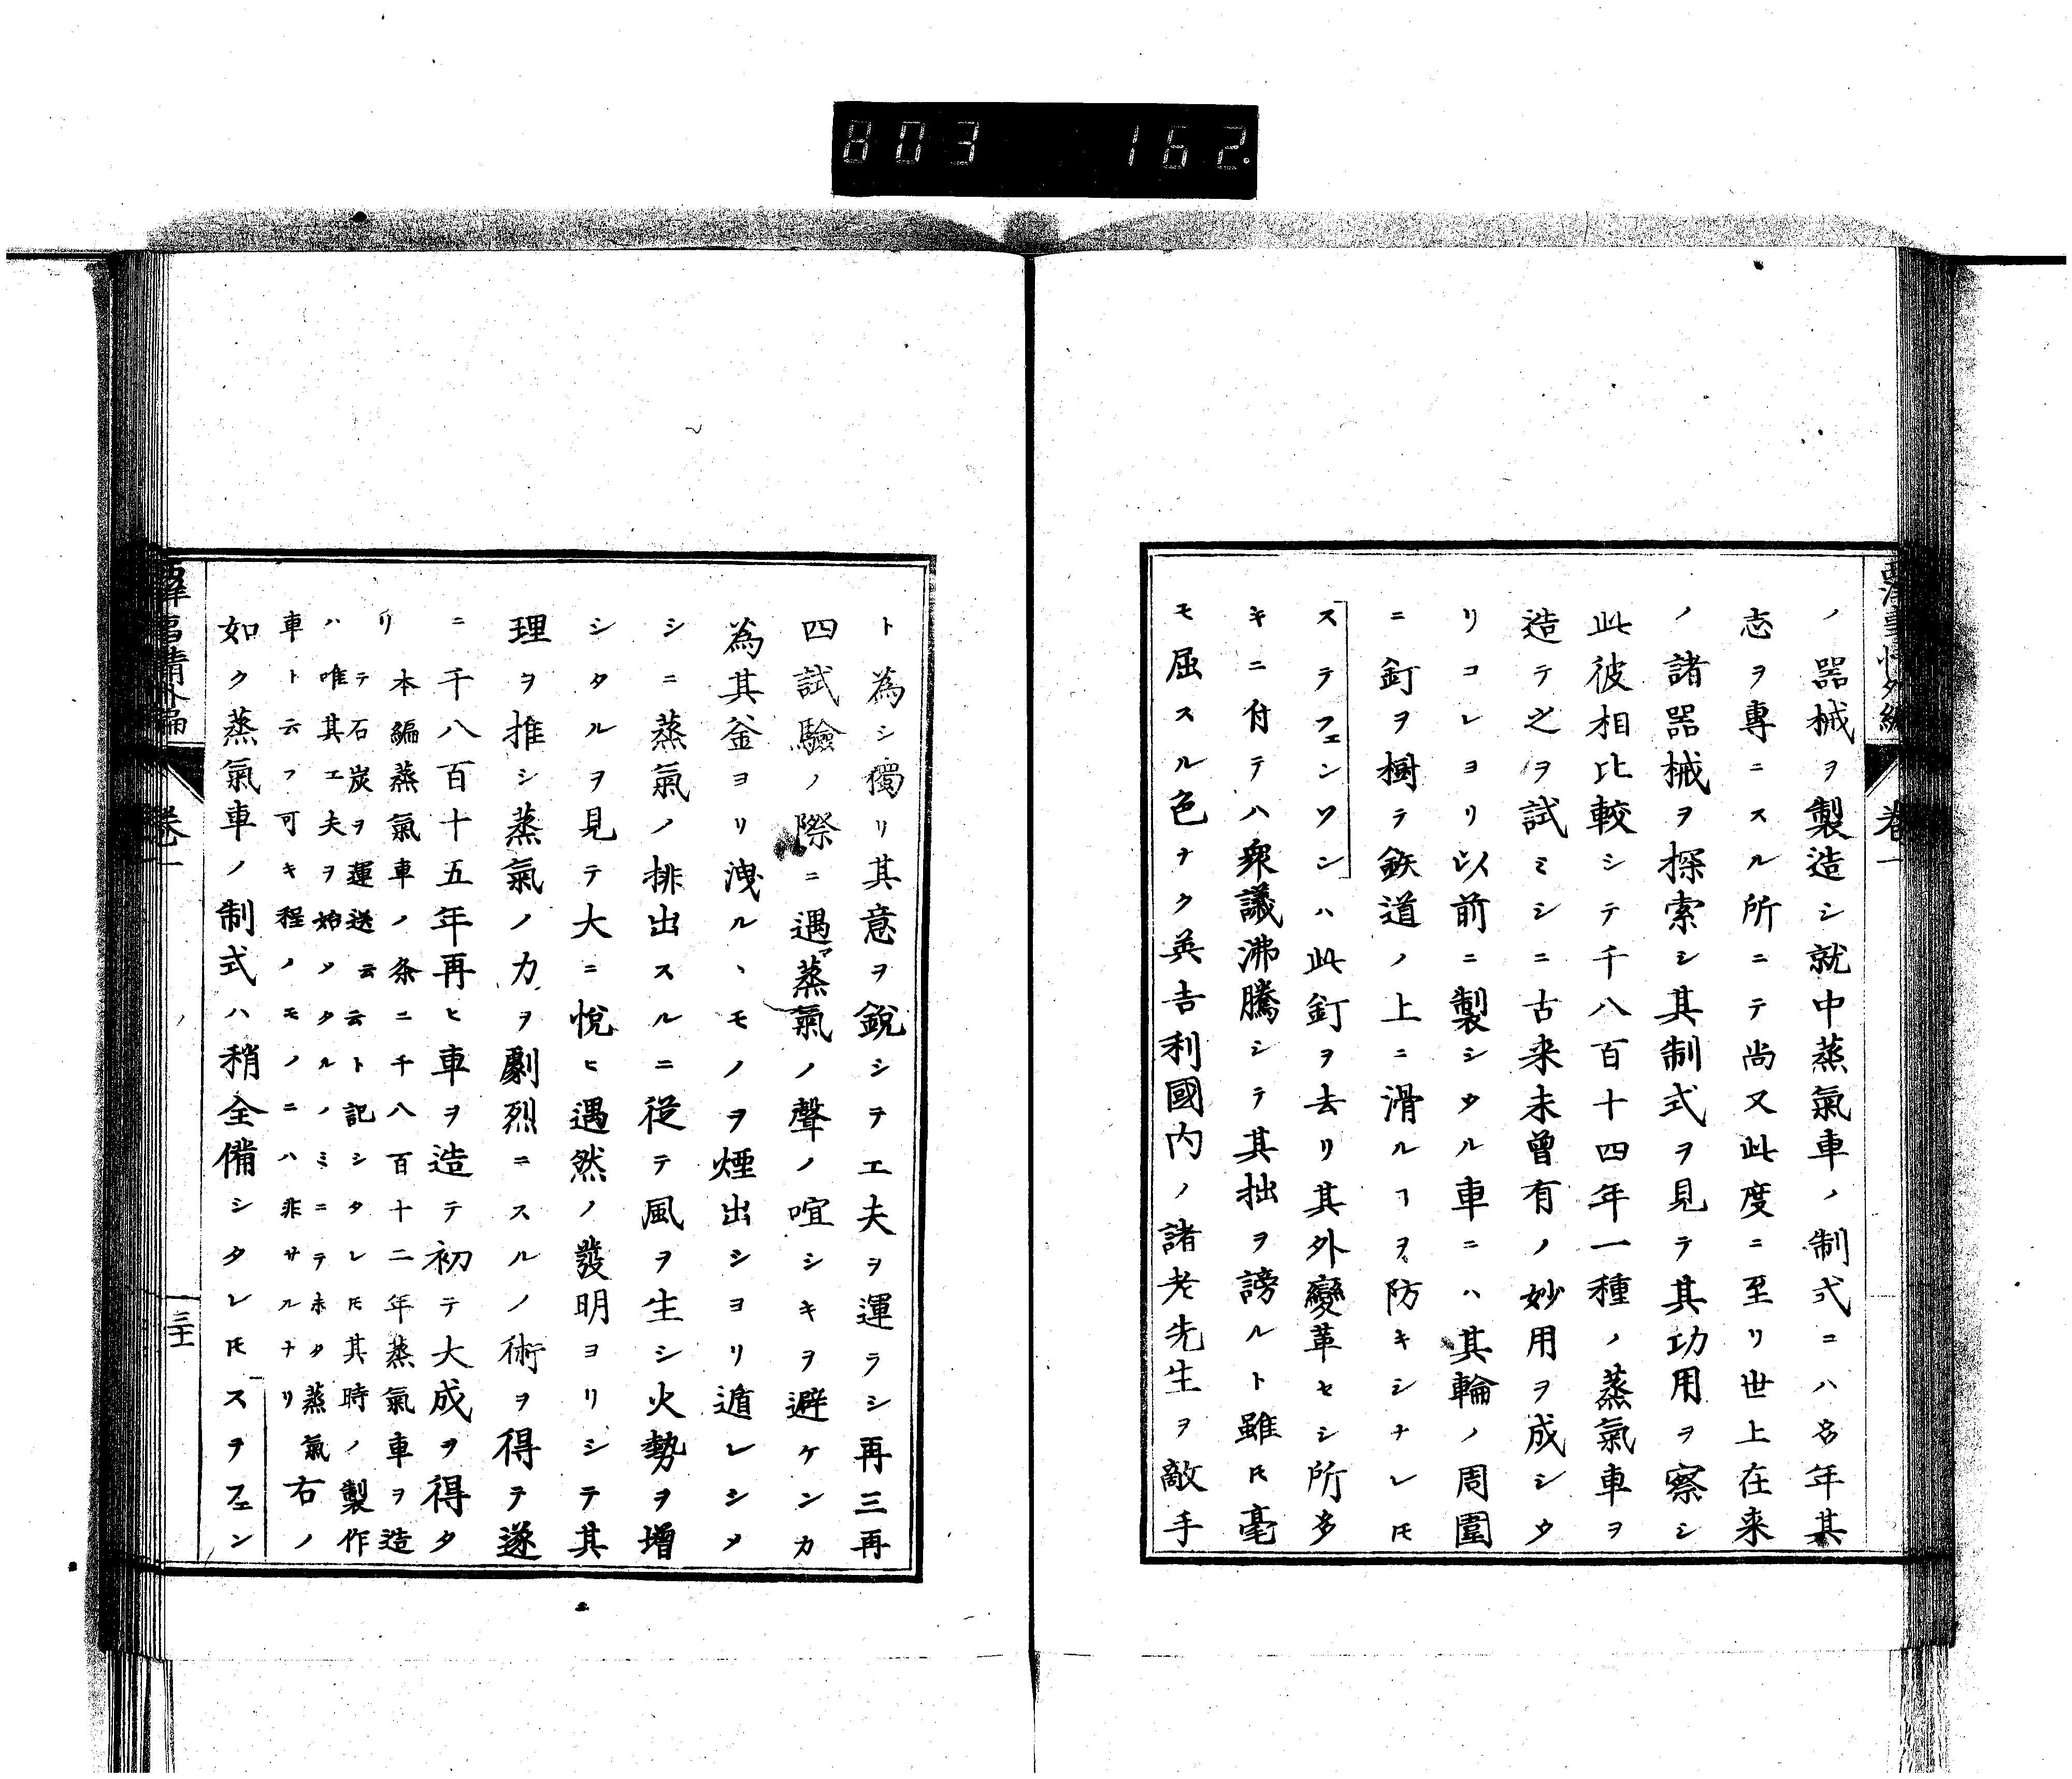 803 162
西洋事情外編 卷一
ノ器械ヲ製造シ就中蒸氣車ノ制式ニハ多年其
志ヲ專ニスル所ニテ尚又此度ニ至リ世上在来
ノ諸器械ヲ探索シ其制式ヲ見テ其功用ヲ察シ
此彼相比較シテ千八百十四年一種ノ蒸氣車ヲ
造テ之ヲ試ミシニ古来未曾有ノ妙用ヲ成シタ
リコレヨリ以前ニ製シタル車ニハ其輪ノ周圍
ニ釘ヲ樹テ鉄道ノ上ニ滑ルヿヲ防キシナレ𪜈
ステフェンソンハ此釘ヲ去リ其外變革セシ所多
キニ付テハ衆議沸騰シテ其拙ヲ謗ルト雖𪜈毫
モ屈スル色ナク英吉利國内ノ諸老先生ヲ敵手
ト為シ獨リ其意ヲ鋭シテ工夫ヲ運ラシ再三再
四試驗ノ際ニ遇マ蒸氣ノ聲ノ喧シキヲ避ケンカ
為其釜ヨリ洩ルヽモノヲ煙出シヨリ遁レシメ
シニ蒸氣ノ排出スルニ從テ風ヲ生シ火勢ヲ增
シタルヲ見テ大ニ悅ヒ遇然ノ發明ヨリシテ其
理ヲ推シ蒸氣ノ力ヲ劇烈ニスルノ術ヲ得テ遂
ニ千八百十五年再ヒ車ヲ造テ初テ大成ヲ得タ
リ
本編蒸氣車ノ条ニ千八百十二年蒸氣車ヲ造
テ石炭ヲ運送云云ト記シタレ𪜈其時ノ製作
ハ唯其工夫ヲ始メタルノミニテ未タ蒸氣
車ト云フ可キ程ノモノニハ非サルナリ
右ノ
如ク蒸氣車ノ制式ハ稍全備シタレ𪜈スヲフェン
西洋事情外編 卷一